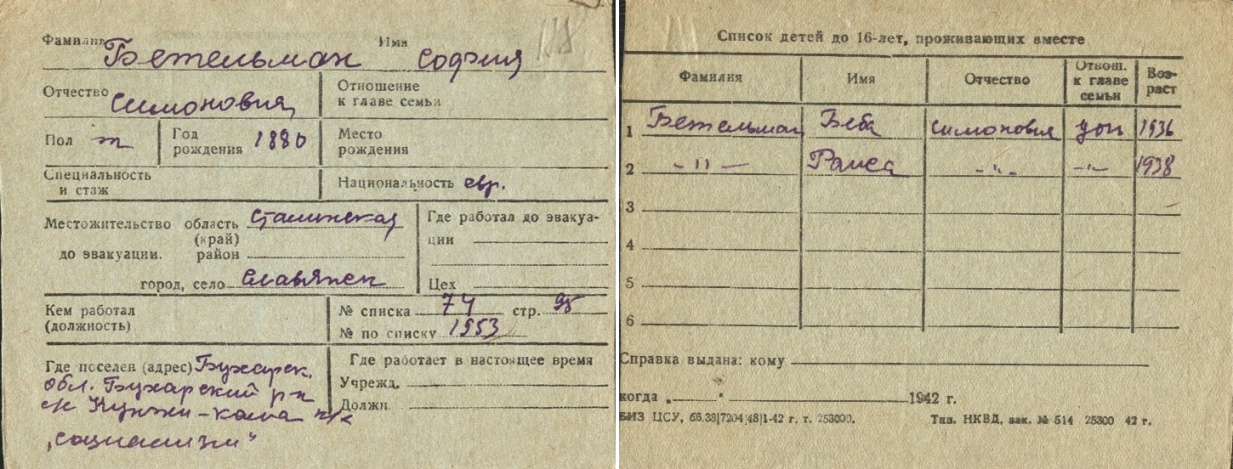 Фамилия Бетельман Имя София
Отчество Симоновна Отношение к главе семьи
Пол ж Год рождения 1880 Место рождения
Специальность и стаж Национальность евр.
Местожительство область Сталинская Где работал до эвакуа-
(край) ции
до эвакуации. район
город, село Славянск Цех
Кем работал № списка 74 стр. 95
(должность) № по списку 1953
Где поселен (адрес) Бухарск. Где работает в настоящее время
обл. Бухарский р-н Учрежд.
с/с к/х Должн.
„социализм“
Список детей до 16-лет, проживающих вместе
Фамилия Имя Отчество Отнош. к главе семьи Воз-раст
1 Бетельман Беба Симоновна доч 1936
2 -"- Раиса -"- -"- 1938
3
4
5
6
Справка выдана: кому
когда „ " 1942 г.
БИЗ ЦСУ, 66.38|7204|48|1-42 г. т. 253000. Тип. НКВД, зак. № 514 25300 42 г.